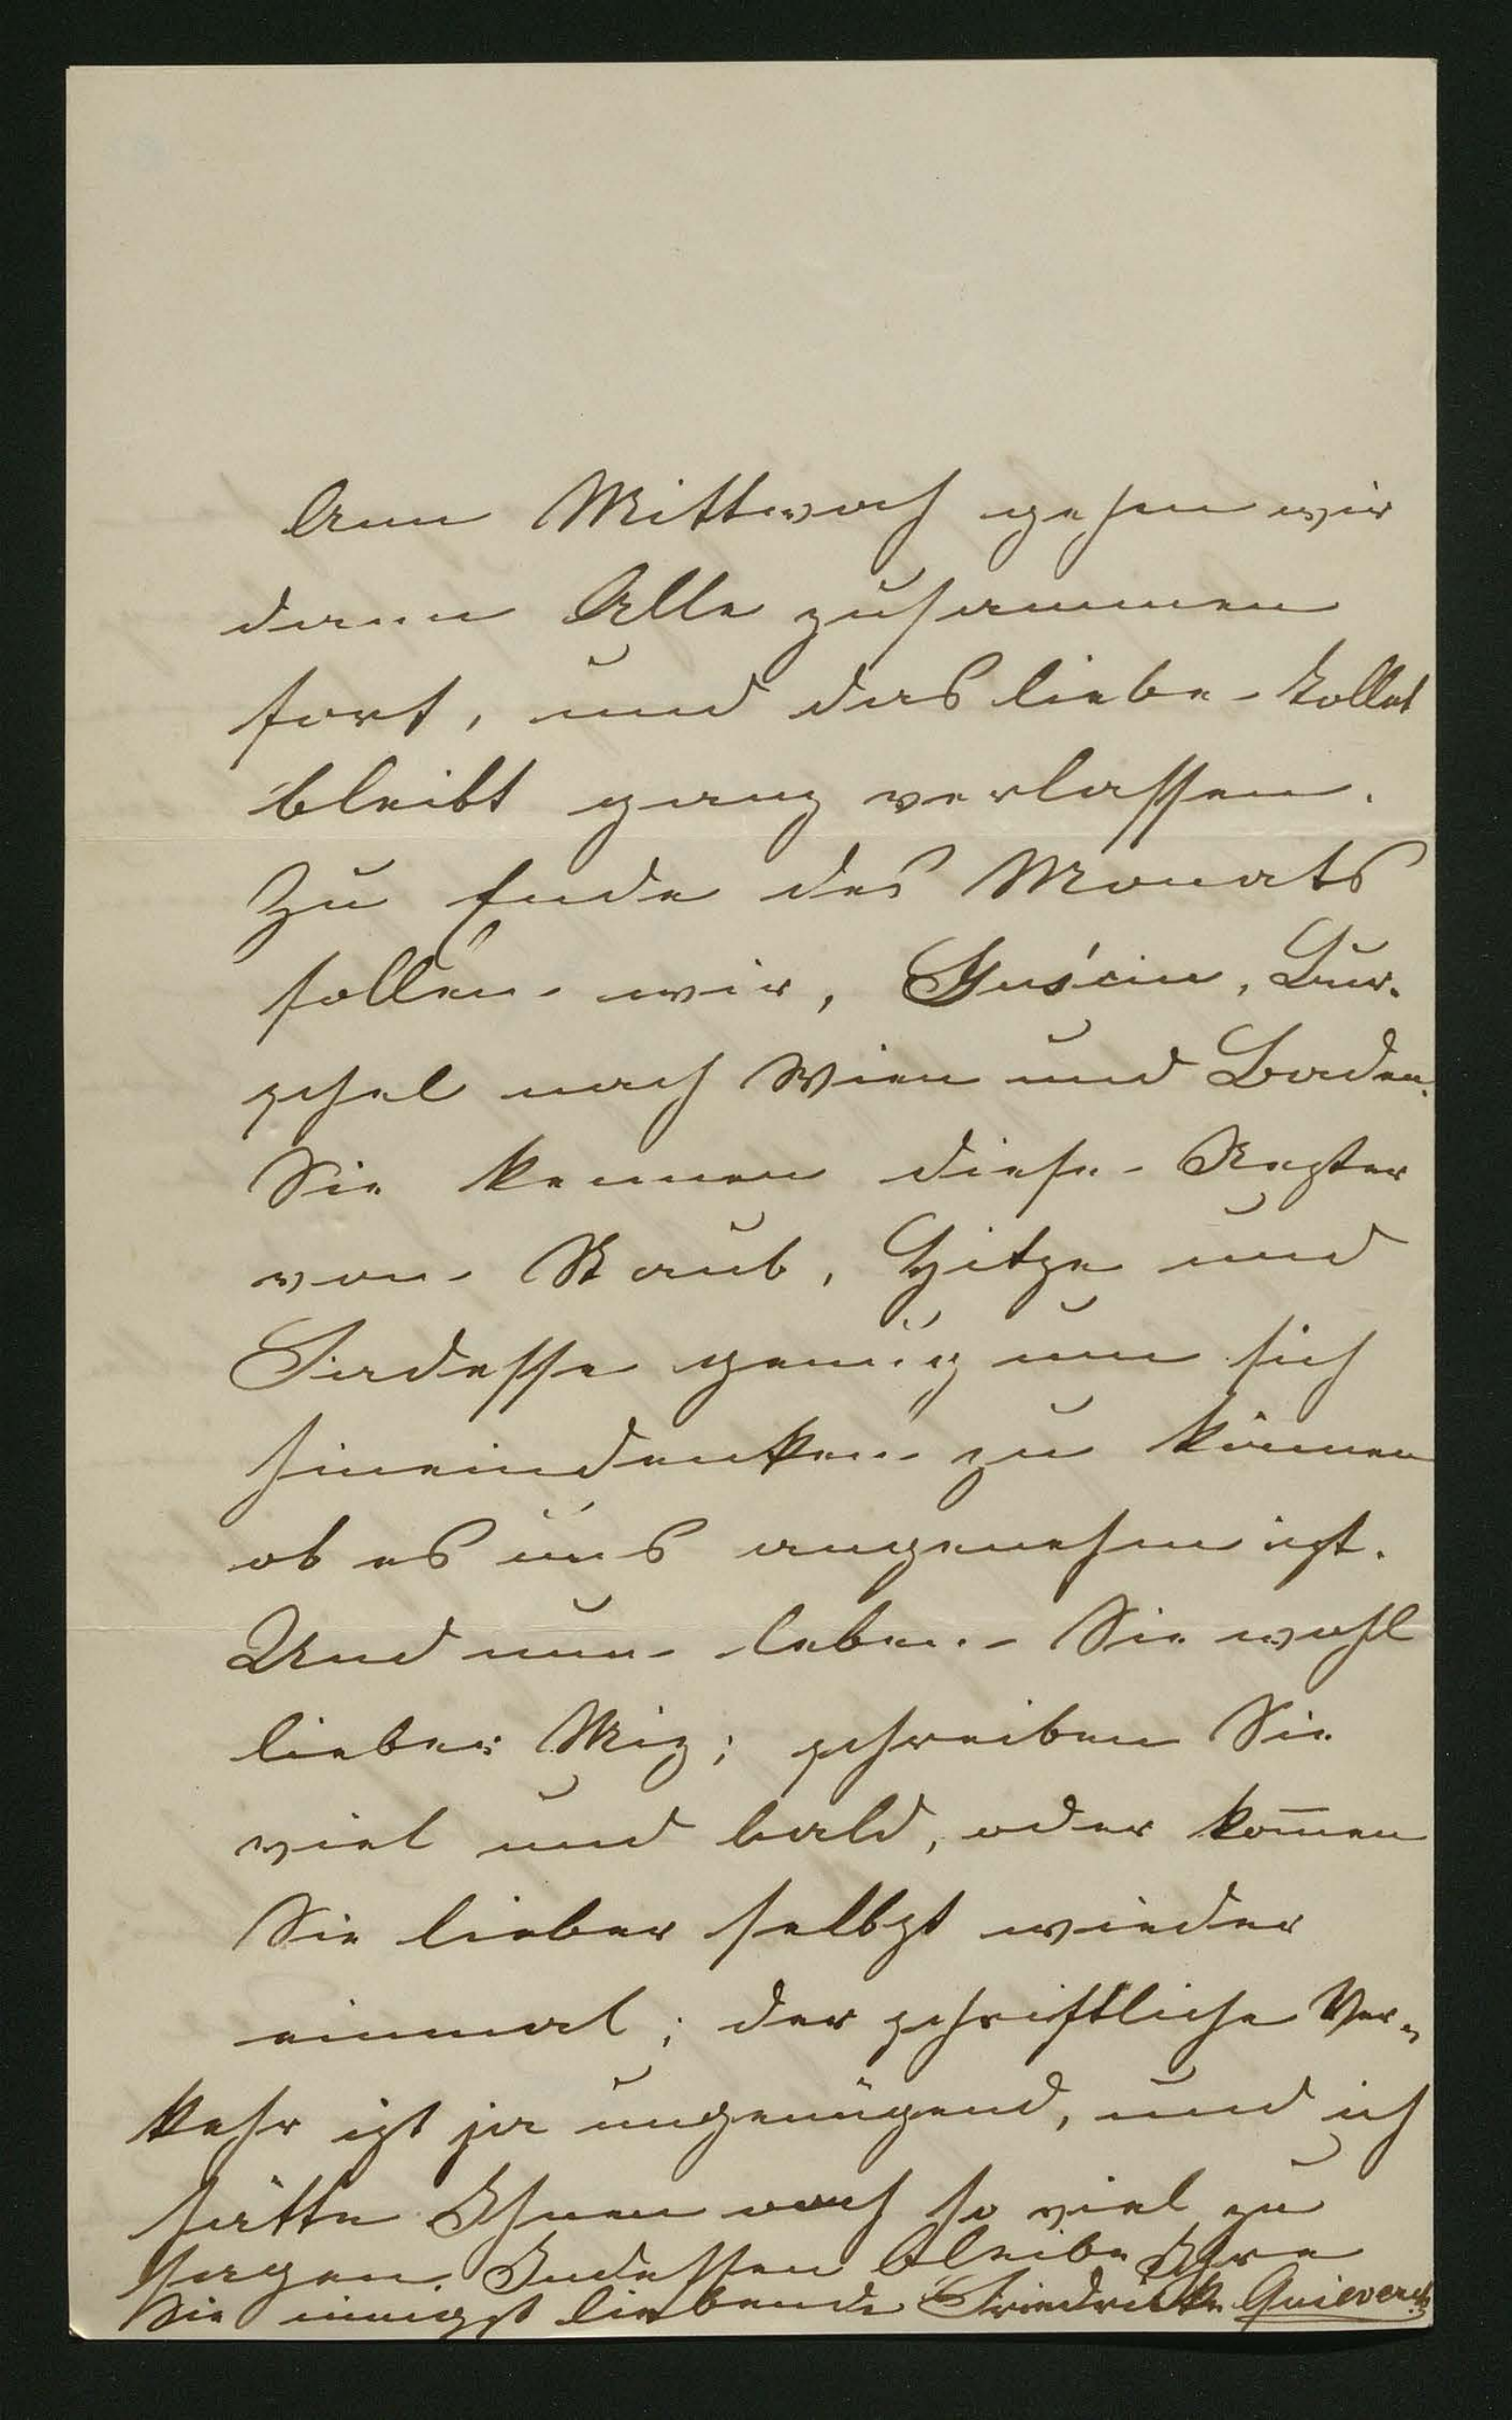 Am Mittwoch gehen wir
dann Alle zusammen
fort, und das liebe Kollat
bleibt ganz verlassen.
Zu Ende des Monats
sollen wir,
nach Wien und Baden.
Sie kennen diese Nester
von Staub, Hitze und
genug um sich
hineindenken zu können
ob es uns angenehm ist.
Und nun leben Sie wohl
lieber Miz; schreiben Sie
viel und bald, oder kom̄en
Sie lieber selbst wieder
einmal; der schriftliche Ver-
kehr ist ja ungenügend, und ich
hätte Ihnen noch so viel zu
sagen. Indessen bleibe Ihre
Sie innigst liebende Friederike